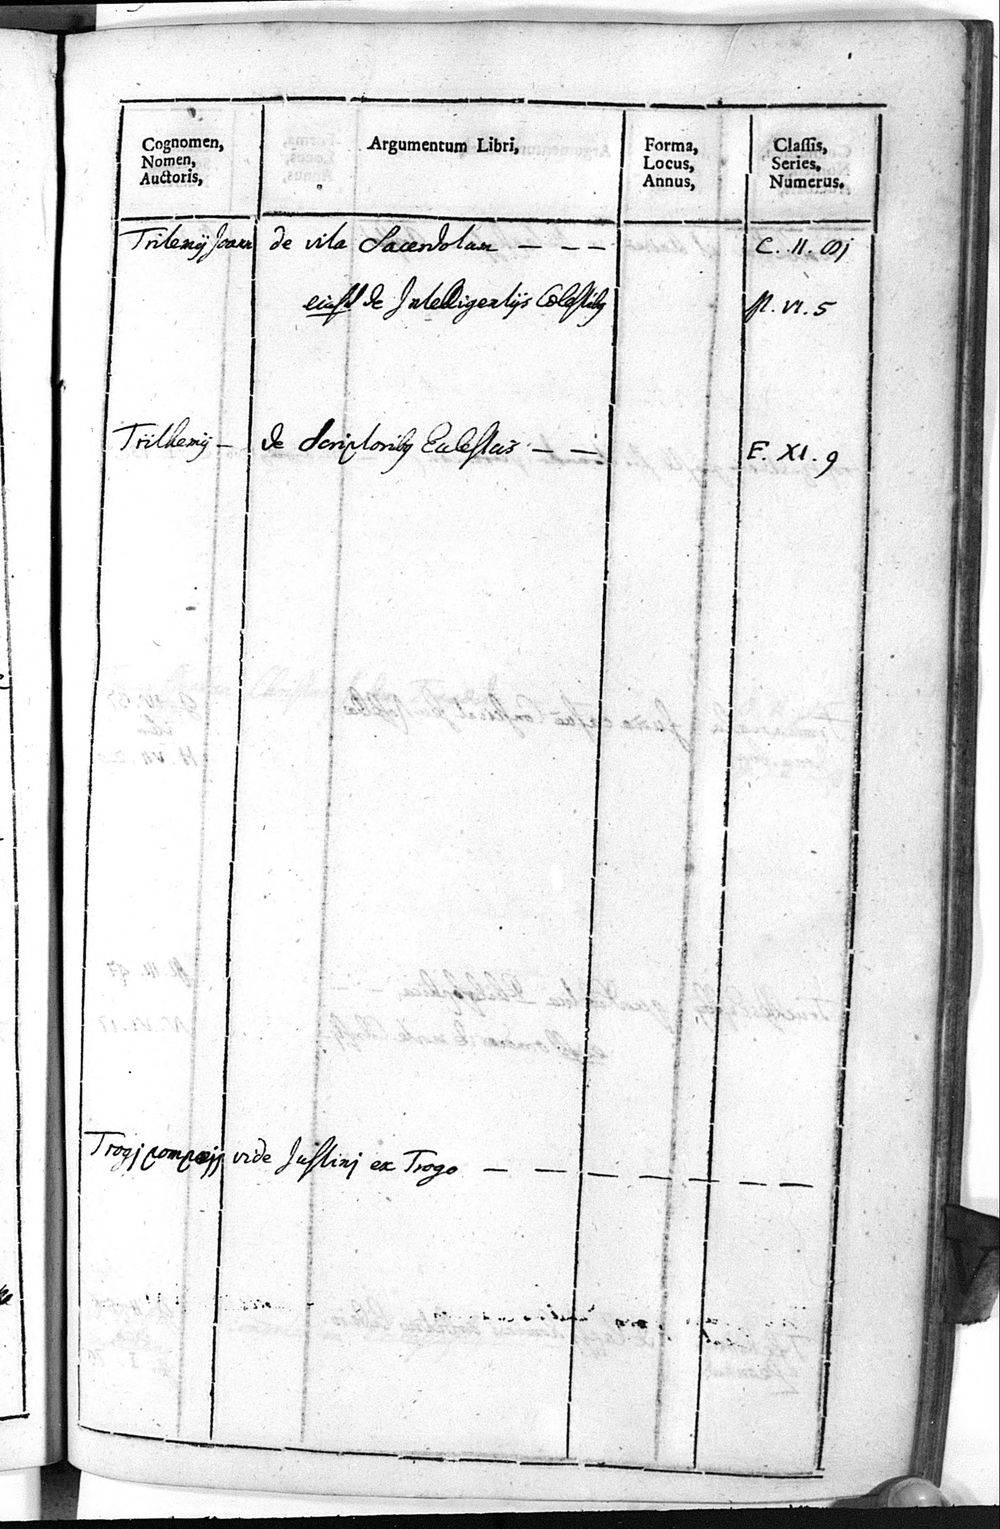 Cognomen,
Nomen,
Auctoris,
Argumentum Libri,
Forma,
Locus,
Annus,
Classis,
Series,
Numerus,
Tritemij Joan de vita Sacerdotum — — — C. II.
de Intelligentijs Cœlestibꝰ VI. 5
Trithemij — de Scriptoribꝰ Ecclesticis — — E. XI. 9
Trogj pompeij vide Justinj ex Trogo — — — — — — —